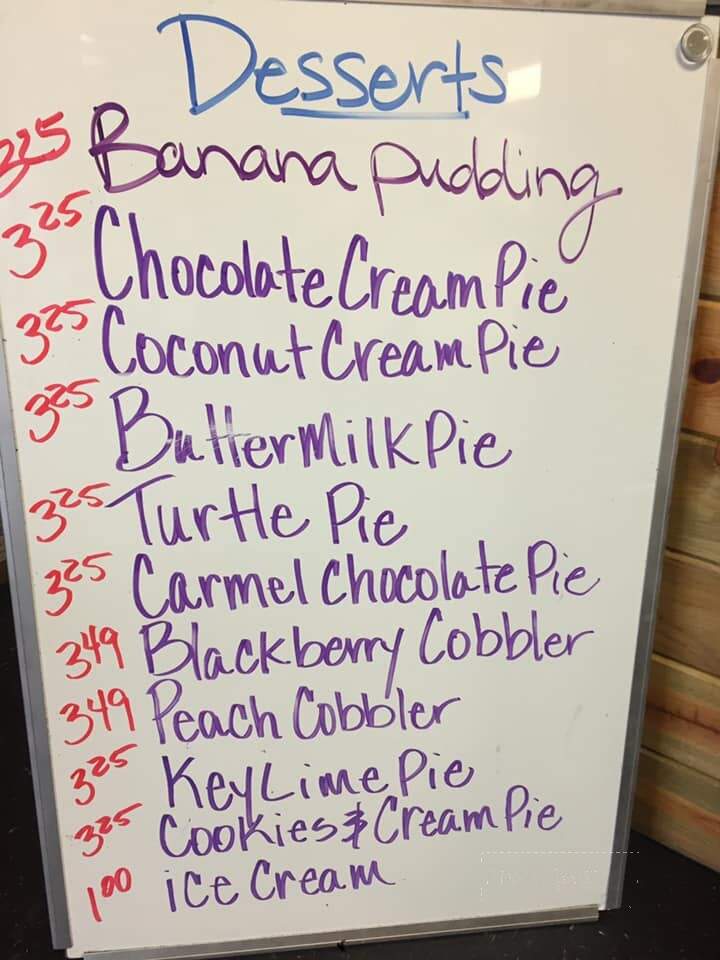 Desserts
325 Banana Pudding
325 Chocolate Cream Pie
325 Coconut Cream Pie
325 ButterMilk Pie
325 Turtle Pie
325 Carmel Chocolate Pie
349 Blackberry Cobbler
349 Peach Cobbler
325 Key Lime Pie
325 Cookies & Cream Pie
100 ice Cream